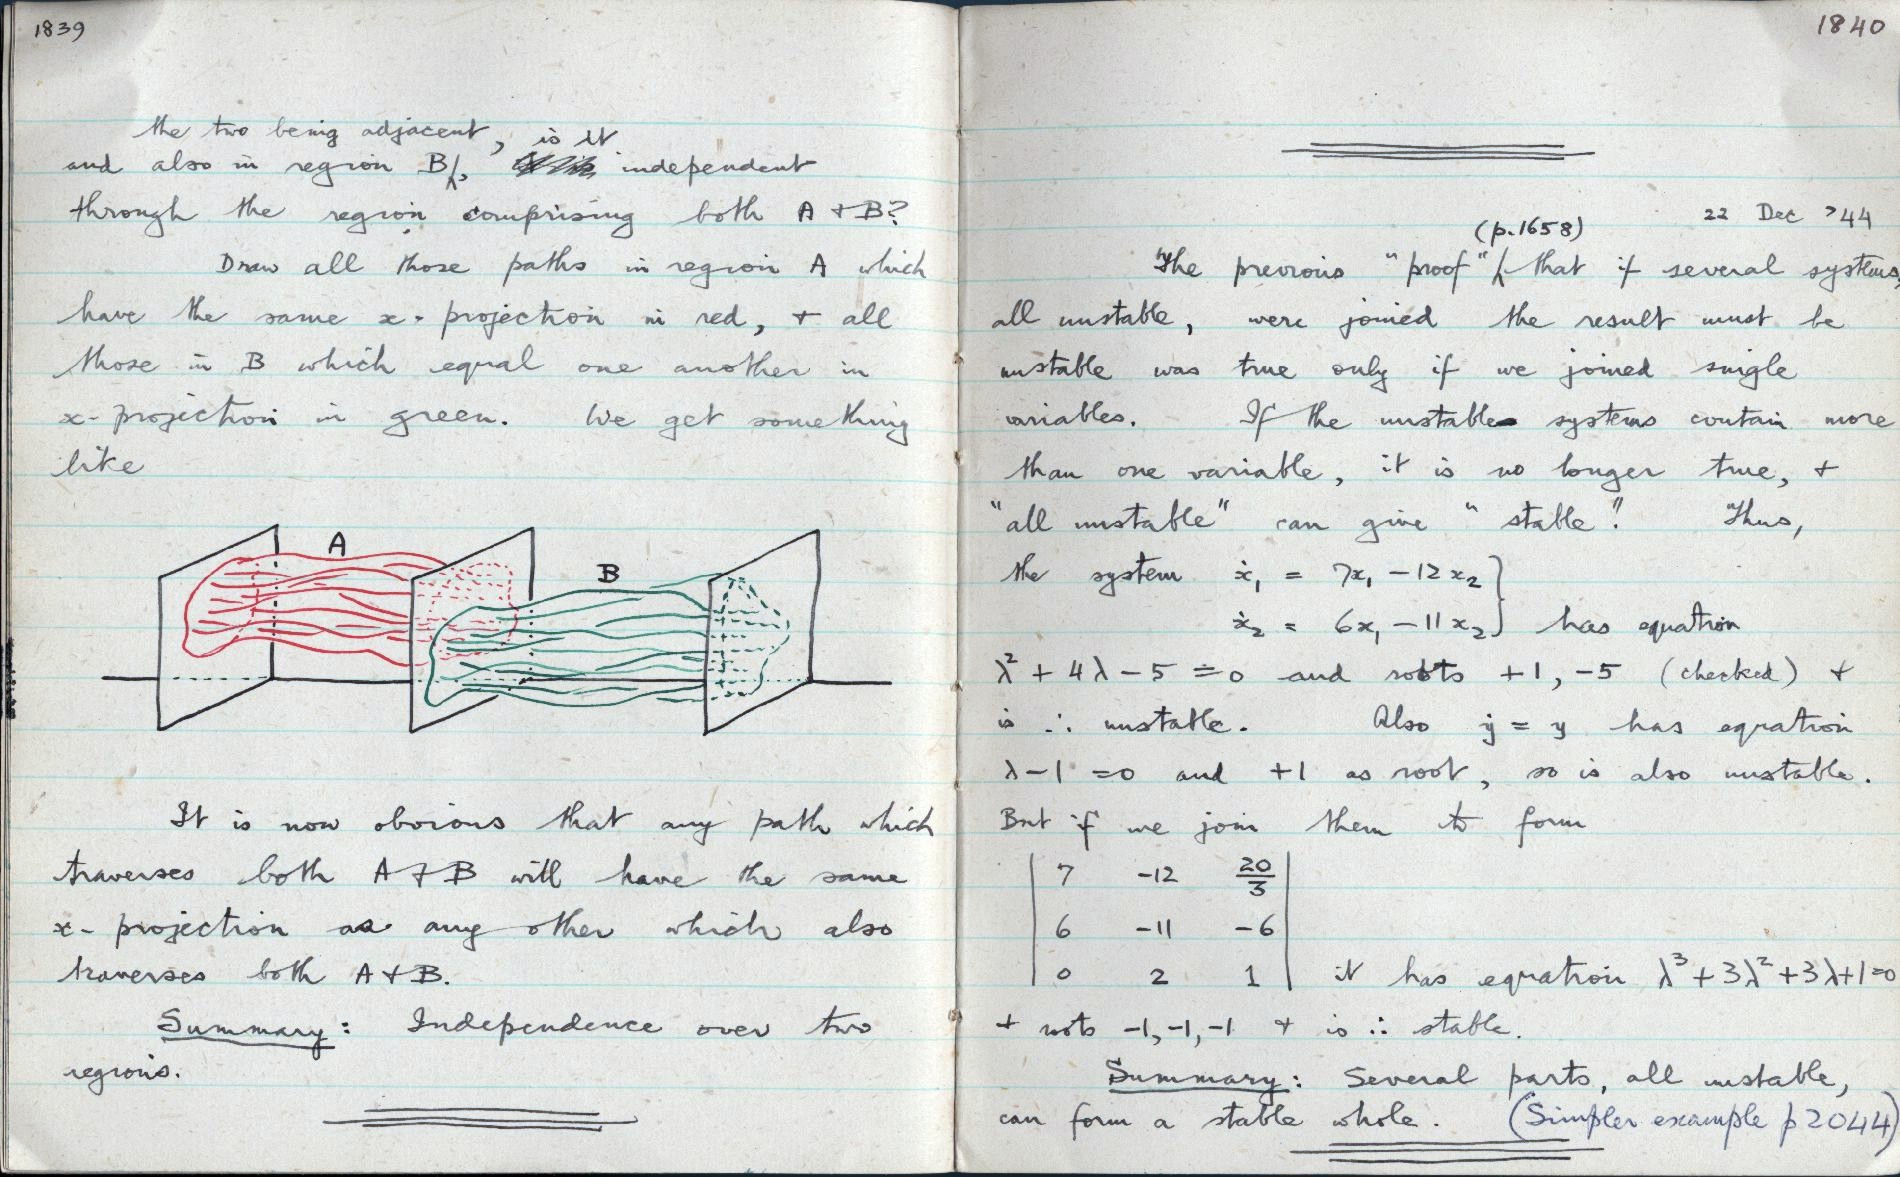 1839
the two being adjacent, is it
and also in region B, independent
through the region comprising both A + B?
Draw all those paths in region A which
have the same x-projection in red, + all
those in B which equal one another in
x-projection in green. We get something
like
A
B
It is now obvious that any path which
traverses both A + B will have the same
x-projection as any other which also
traverses both A + B.
Summary: Independence over two
regions.
1840
22 Dec '44
(p.1658)
The previous "proof" that if several systems,
all unstable, were joined the result must be
unstable was true only if we joined single
variables. If the unstable systems contain more
than one variable, it is no longer true, +
"all unstable" can give "stable". Thus,
the system ẋ₁ = 7x₁ − 12x₂
ẋ₂ = 6x₁ − 11x₂ } has equation
λ² + 4λ − 5 = 0 and roots +1, −5 (checked) +
is ∴ unstable. Also ẏ = y has equation
λ − 1 = 0 and +1 as root, so is also unstable.
But if we join them to form
| 7 −12 20/3 |
| 6 −11 −6 |
| 0 2 1 | it has equation λ³ + 3λ² + 3λ + 1 = 0
+ roots −1, −1, −1 + is ∴ stable.
Summary: Several parts, all unstable,
can form a stable whole. (Simpler example p 2044)